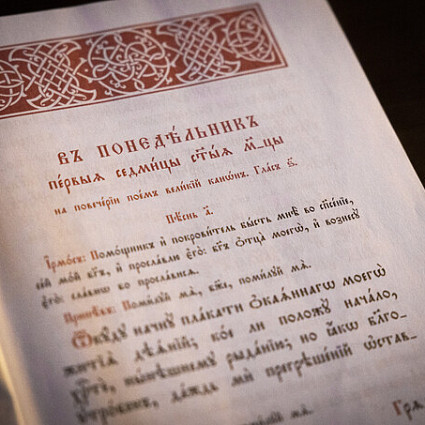 Въ понедѣ́льникъ
пе́рвыѧ седми́цы ст҃ы́ѧ м҃-цы
на повече́рїи пое́мъ вели́кїй кано́нъ. Гла́съ ѕ҃.
Пѣ́снь а҃.
І҆рмо́съ: Помо́щникъ и҆ покрови́тель бы́сть мнѣ̀ во спⷭ҇е́нїе,
се́й мо́й бг҃ъ, и҆ просла́влю є҆го̀: бг҃ъ ѻ҆тца̀ моегѡ̀, и҆ вознесꙋ̀
є҆го̀: сла́внѡ бо просла́висѧ.
Припѣ́въ: Поми́лꙋй мѧ̀, бж҃е, поми́лꙋй мѧ̀.
Ѿкꙋ́дꙋ начнꙋ̀ пла́кати ѻ҆каѧ́ннагѡ моегѡ̀
житїѧ̀ дѣѧ́нїй; ко́е ли положꙋ̀ нача́ло,
хрⷭ҇тѐ, ны́нѣшнемꙋ рыда́нїю; но ꙗ҆́кѡ бл҃го-
ꙋтро́бенъ, да́ждь мѝ прегрѣше́нїй ѡ҆ставл-
Поми́лꙋй мѧ̀.
Грѧ-